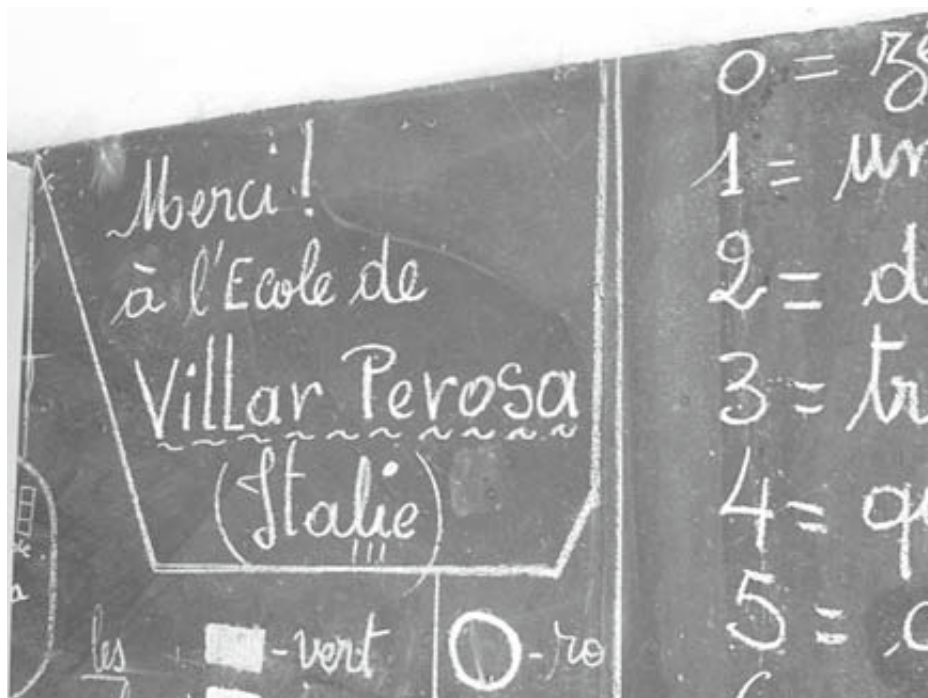 Merci !
à l'Ecole de
Villar Perosa
(Italie)
les
- vert
- ro
0 = zé
1 = un
2 = d
3 = tr
4 = qu
5 = c